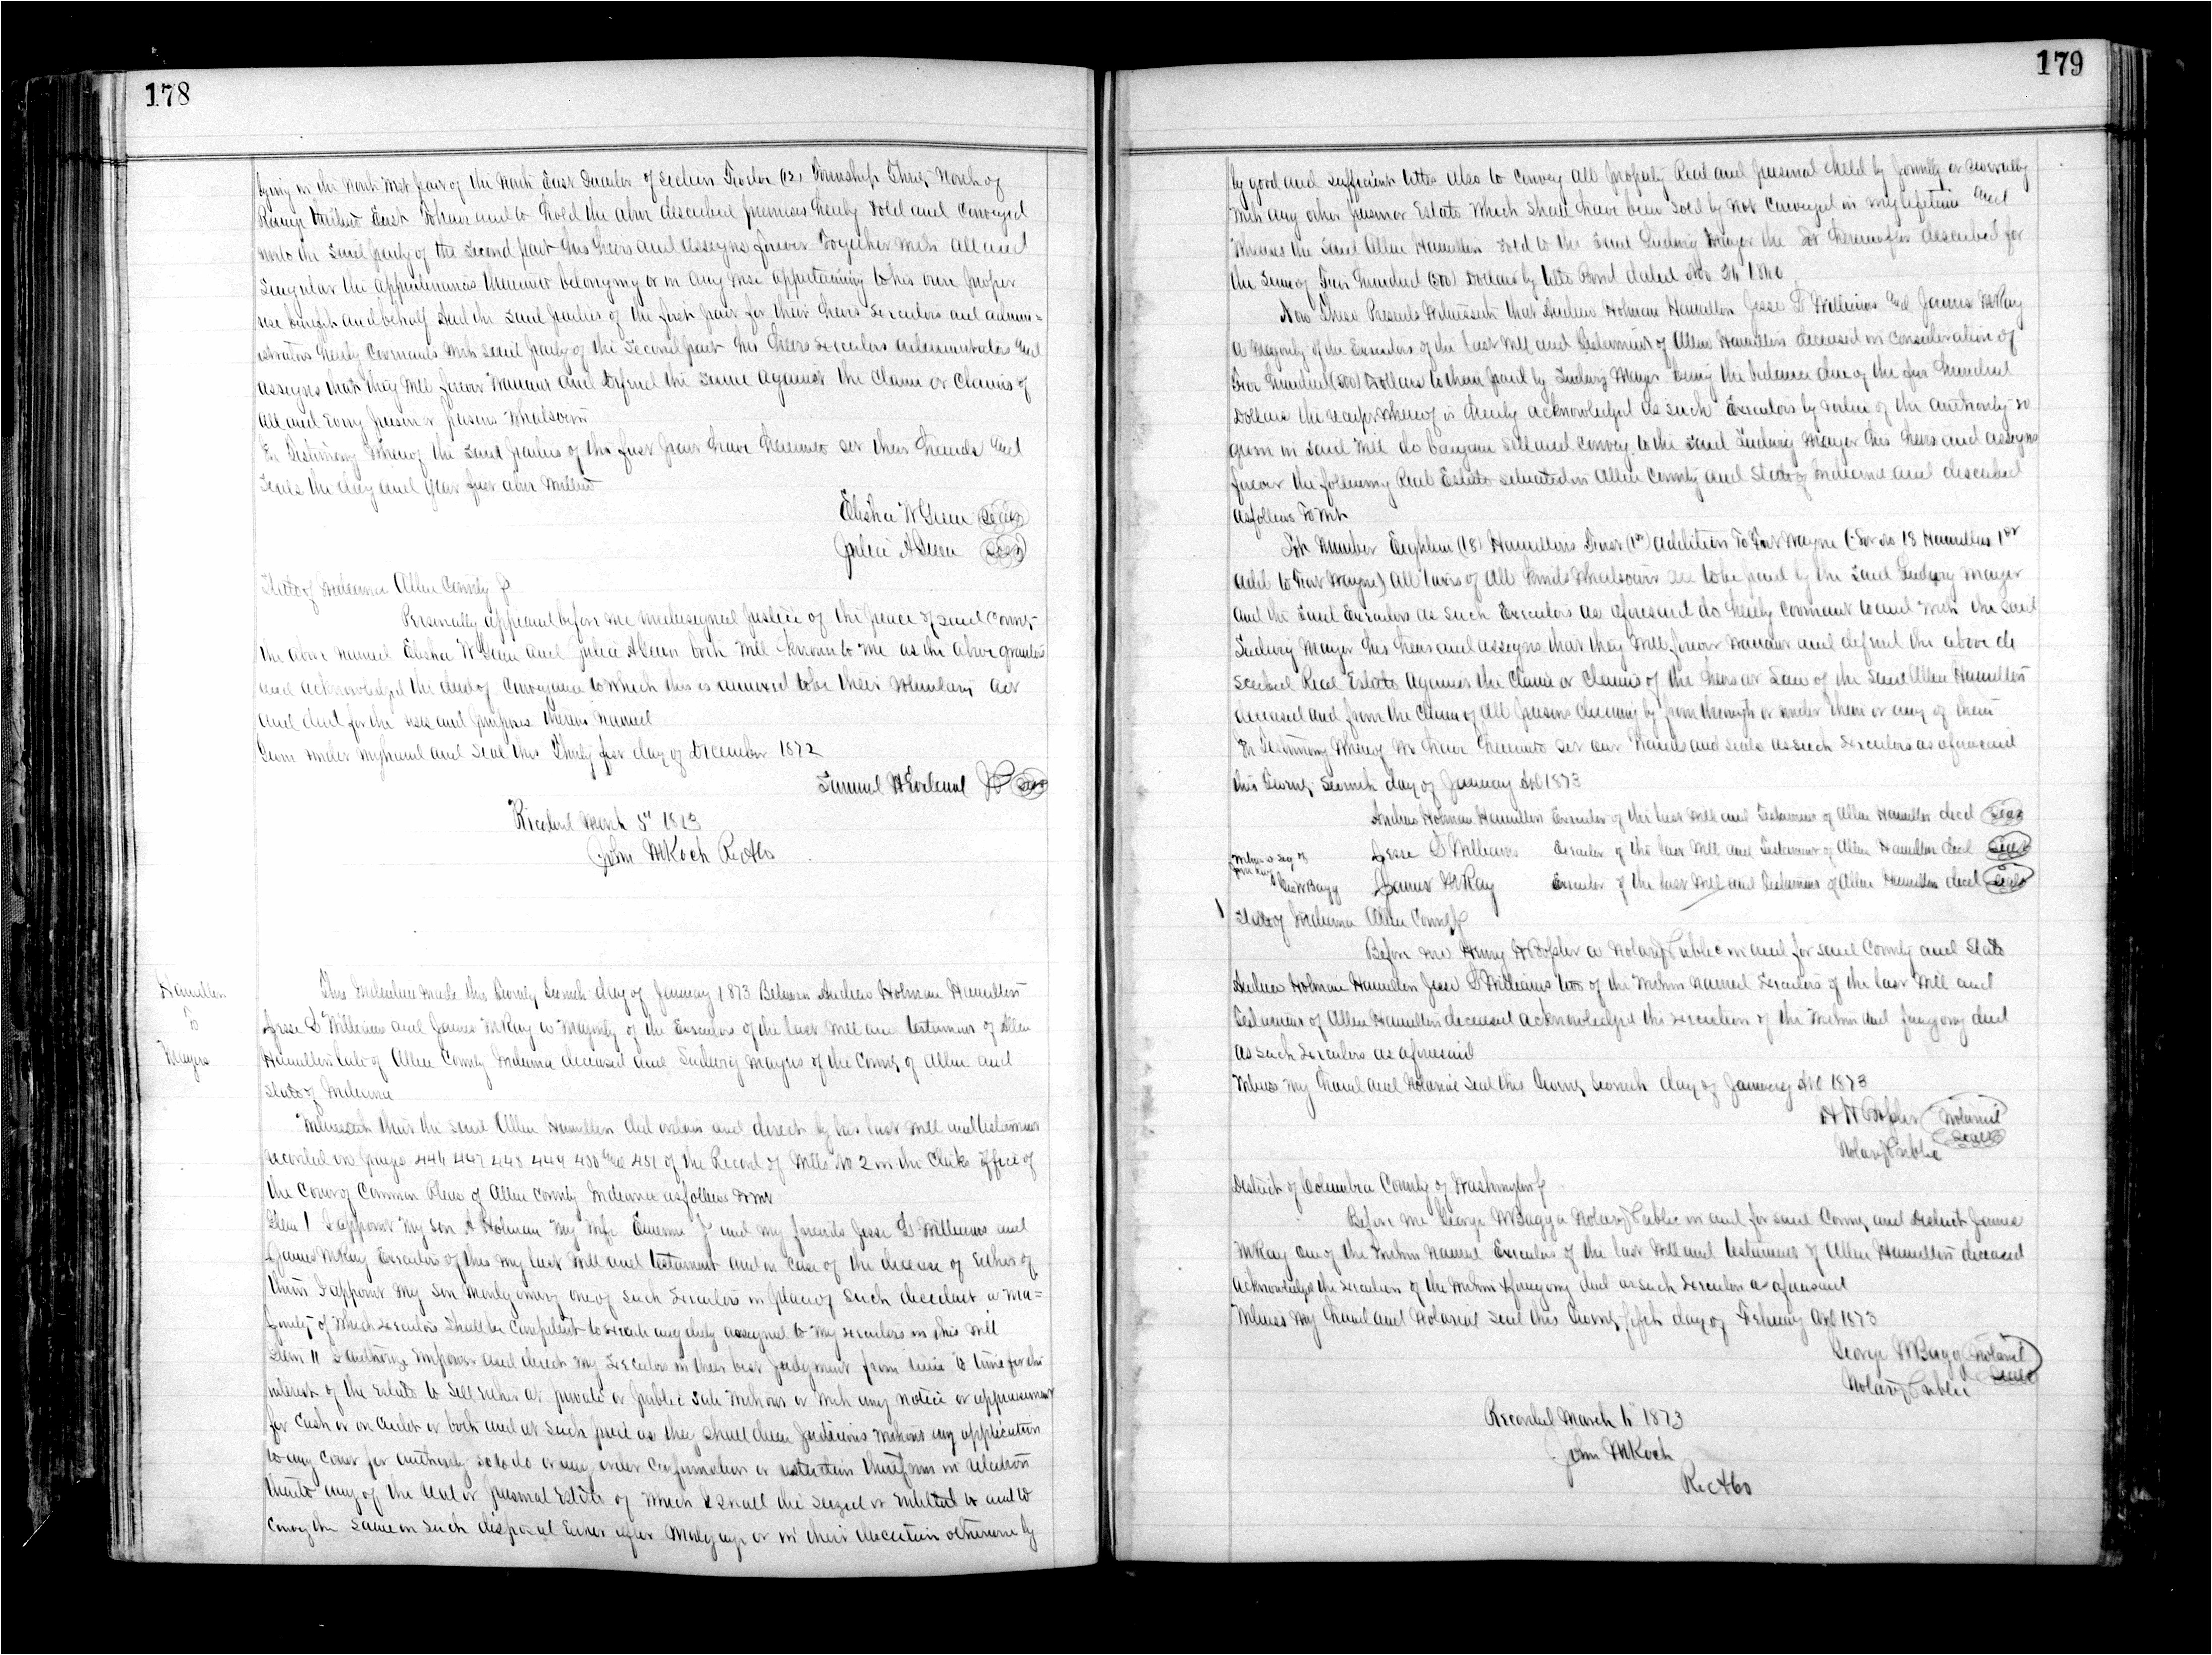 178
lying in the North West part of the North East Quarter of Section Twelve (12) Township Thirty North of
Range Twelve East To have and to hold the above described premises hereby sold and conveyed
unto the said party of the second part his heirs and assigns forever Together with all and
Singular the appurtenances thereunto belonging or in any wise appertaining to his own proper
use benefit and behalf And the said parties of the first part for their heirs Executors and admin=
istrators hereby Covenants with said party of the Second part his heirs executors administrators and
assigns that they will forever Warrant and defend the same against the Claim or Claims of
all and every person or persons Whatsoever
In Testimony Whereof the said parties of the first part have hereunto set their hands and
Seals the day and year first above Written
Elisha W Green Seal
Julia A Green Seal
State of Indiana Allen County
Personally appeared before me undersigned Justice of the peace of said County
the above named Elisha W Green and Julia A Green both well known to me as the above grantors
and acknowledged the deed of Conveyance to which this is annexed to be their Voluntary act
and deed for the uses and purposes therein named
Given under my hand and Seal this Thirty first day of December 1872
Samuel H JP Seal
Received March 5" 1873
John M Koch RecACo
Hamilton
To
Mayers
This Indenture made this Twenty Seventh day of January 1873 Between Andrew Holman Hamilton
Jesse L Williams and James W Ray a Majority of the Executors of the last Will and testament of Allen
Hamilton late of Allen County Indiana deceased and Ludwig Mayers of the County of Allen and
State of Indiana
Witnesseth that the said Allen Hamilton did ordain and direct by his last Will and testament
recorded on pages 446 447 448 449 450 and 451 of the Record of Wills No 2 in the Clerks office of
the Court of Common Pleas of Allen County Indiana as follows to wit
Item 1 I appoint My son A Holman My Wife Emerine J and my friends Jesse L Williams and
James W Ray Executors of this my last Will and testament and in case of the decease of Either of
them I appoint My son Montgomery one of such Executors in place of such decedent a Ma=
jority of which executors shall be Competent to execute any duty assigned to My executors in this Will
Item 11 I authorize Empower and direct My Executors in their best Judgment from time to time for the
interest of the Estate to Sell Either at private or public sale Without or With any notice or appraisement
for Cash or on Credit or both and at such price as they shall deem Judicious Without any application
to any Court for authority so to do or any order Confirmation or therefrom in relation
thereto any of the real or personal Estate of Which I shall die seized or Entitled to and to
Convey the same on such disposal Either after Mortgage or in their discretion otherwise by
179
by good and sufficient title Also to Convey All property Real and personal held by Jointly or severally
With any other person or Estate Which shall have been sold by Not Conveyed in my lifetime And
Whereas the said Allen Hamilton sold to the said Ludwig Mayer the Lot hereinafter described for
the sum of Hundred Dollars by title Bond dated
Now These Presents Witnesseth that Andrew Holman Hamilton Jesse L Williams and James W Ray
a Majority of the Executors of the last Will and Testament of Allen Hamilton deceased in consideration of
Five Hundred (500) Dollars to them paid by Ludwig Mayer being the balance due of the five hundred
Dollars the receipt Whereof is hereby acknowledged as such Executors by virtue of the authority so
given in said Will do bargain sell and convey to the said Ludwig Mayer his heirs and assigns
forever the following Real Estate situated in Allen County and State of Indiana and described
as follows To Wit
Lot Number Eighteen (18) Hamiltons First (1st) addition To Fort Wayne (Lot No 18 Hamiltons 1st
add to Fort Wayne) All taxes of All Kinds Whatsoever are to be paid by the said Ludwig Mayer
and the said Executors as such Executors as aforesaid do hereby covenant to and With the said
Ludwig Mayer his heirs and assigns that they Will forever Warrant and defend the above de
scribed Real Estate Against the Claim or Claims of the heirs at Law of the said Allen Hamilton
deceased and from the Claim of All persons Claiming by from through or under them or any of them
In Testimony Whereof We have hereunto set our Hands and seals as such executors as aforesaid
this Twenty Seventh day of January AD 1873
Andrew Holman Hamilton Executor of the last Will and Testament of Allen Hamilton decd Seal
Jesse L Williams Executor of the last Will and Testament of Allen Hamilton decd Seal
Geo W Bagg James W Ray Executor of the last Will and Testament of Allen Hamilton decd Seal
State of Indiana Allen County
Before me Henry a Notary Public in and for said County and State
Andrew Holman Hamilton Jesse L Williams two of the Within named Executors of the last Will and
Testament of Allen Hamilton deceased acknowledged the execution of the Within and foregoing deed
as such Executors as aforesaid
Witness My Hand and Notarial Seal this Twenty Seventh day of January AD 1873
Notarial
Seal
Notary Public
District of Columbia County of Washington
Before me George W Bagg a Notary Public in and for said County and District James
W Ray one of the Within Named Executors of the last Will and testament of Allen Hamilton deceased
acknowledged the execution of the Within & foregoing deed as such executor as aforesaid
Witness My Hand and Notarial Seal this Twenty fifth day of February AD 1873
George W Bagg Notarial
Seal
Notary Public
Recorded March 1873
John M Koch
RecACo